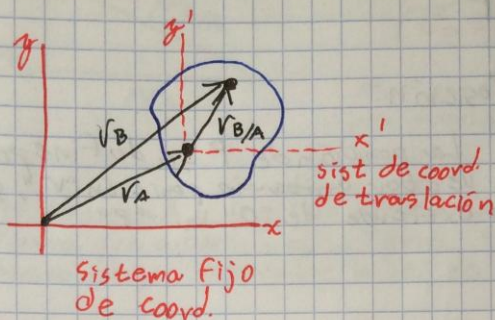 y
y'
rB
rB/A
rA
x'
sist de coord.
de traslación
x
sistema fijo
de coord.